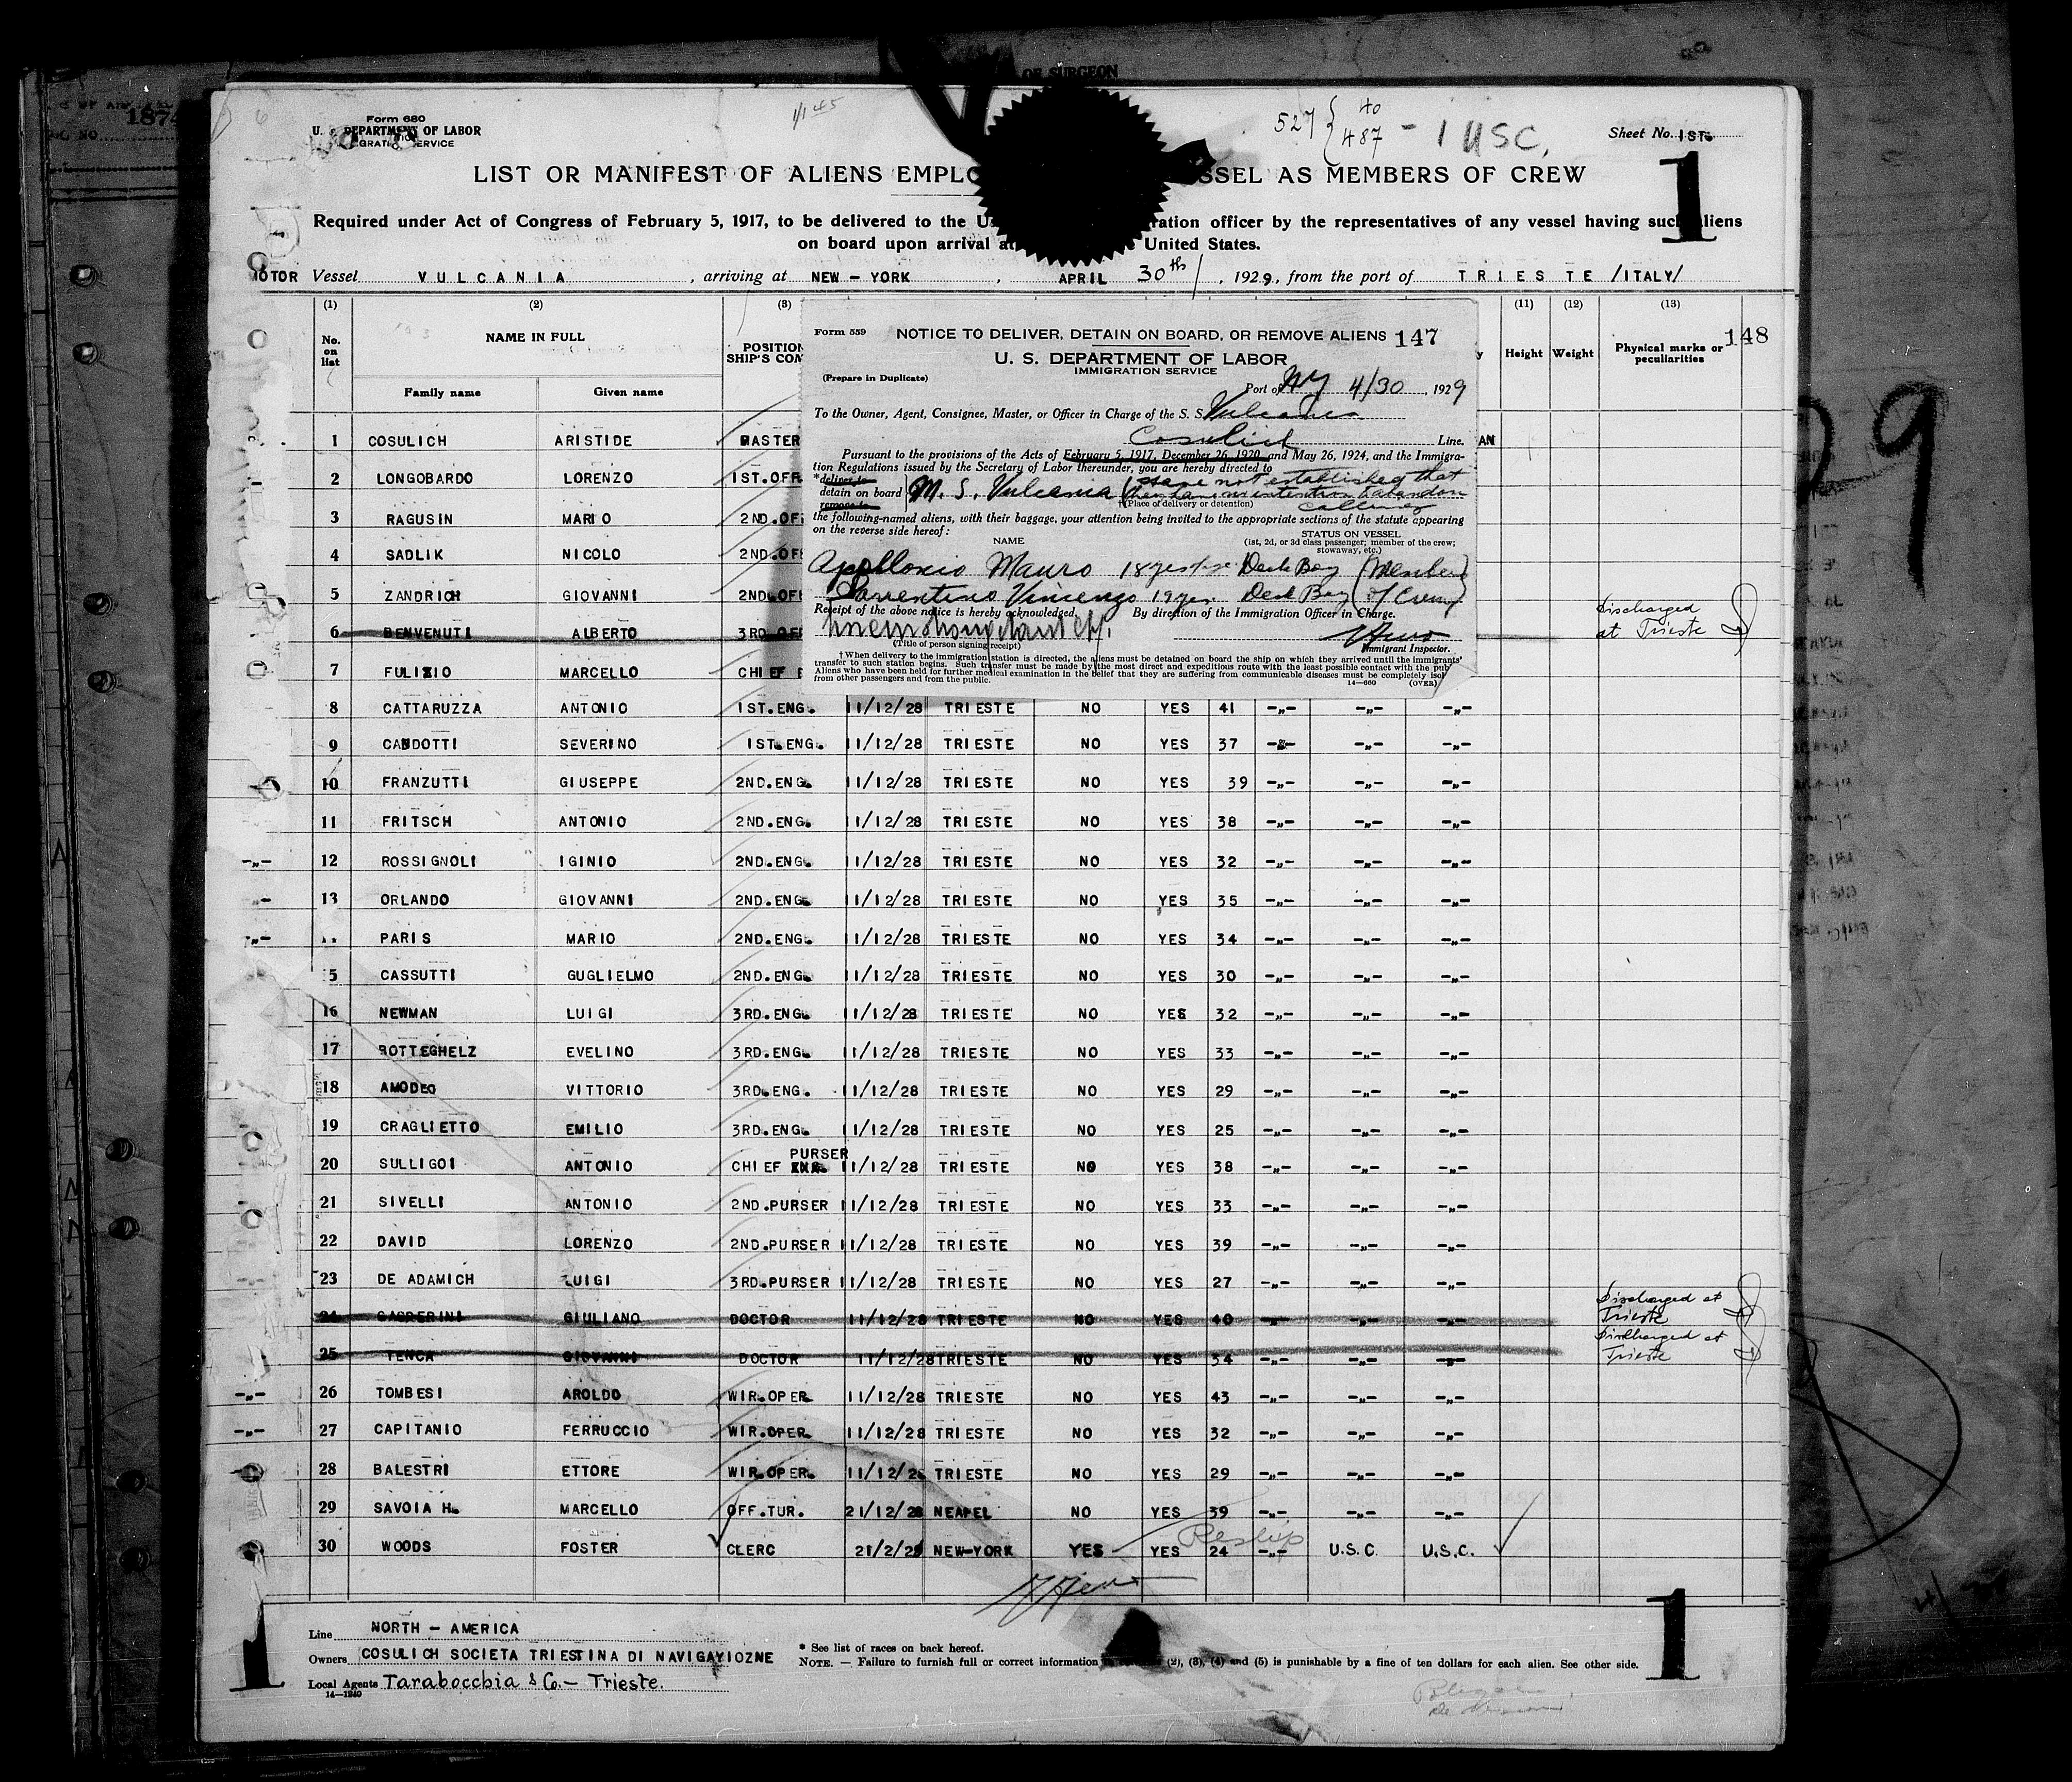 OF SURGEON
1874
Form 680
U. S. DEPARTMENT OF LABOR
IMMIGRATION SERVICE
1/1 45
527 { 40
487 - 1 USC.
Sheet No. 1ST.
1
LIST OR MANIFEST OF ALIENS EMPLO SSEL AS MEMBERS OF CREW
Required under Act of Congress of February 5, 1917, to be delivered to the U ration officer by the representatives of any vessel having such aliens
on board upon arrival at United States.
MOTOR Vessel VULCANIA , arriving at NEW - YORK , APRIL 30th , 1929, from the port of TRIESTE /ITALY/
(1) (2) (3) (11) (12) (13)
148
No. on list NAME IN FULL POSITION SHIP'S COM Height Weight Physical marks or peculiarities
Family name Given name
Form 559 NOTICE TO DELIVER, DETAIN ON BOARD, OR REMOVE ALIENS 147
U. S. DEPARTMENT OF LABOR
IMMIGRATION SERVICE
(Prepare in Duplicate)
Port of NY 4/30, 1929
To the Owner, Agent, Consignee, Master, or Officer in Charge of the S. S. Vulcania
Cosulich Line.
Pursuant to the provisions of the Acts of February 5, 1917, December 26, 1920, and May 26, 1924, and the Immigra-
tion Regulations issued by the Secretary of Labor thereunder, you are hereby directed to
*deliver to
detain on board M. S. Vulcania (have not established that
remove to they have no intention to abandon
†(Place of delivery or detention) calling
the following-named aliens, with their baggage, your attention being invited to the appropriate sections of the statute appearing
on the reverse side hereof:
NAME STATUS ON VESSEL
(1st, 2d, or 3d class passenger; member of the crew; stowaway, etc.)
Apollonio Mauro 18 yrs Deck Boy (Member
Sorrentino Vincenzo 19 yrs Deck Boy of Crew)
Receipt of the above notice is hereby acknowledged. By direction of the Immigration Officer in Charge.
(Title of person signing receipt) Immigrant Inspector.
† When delivery to the immigration station is directed, the aliens must be detained on board the ship on which they arrived until the immigrants'
transfer to such station begins. Such transfer must be made by the most direct and expeditious route with the least possible contact with the pub
Aliens who have been held for further medical examination in the belief that they are suffering from communicable diseases must be completely isol
from other passengers and from the public. 14—660 (OVER)
1 COSULICH ARISTIDE MASTER AN
2 LONGOBARDO LORENZO 1ST.OFF
3 RAGUSIN MARIO 2ND.OF
4 SADLIK NICOLO 2ND.OF
5 ZANDRICH GIOVANNI 2ND.OF
6 BENVENUTI ALBERTO 3RD OF Discharged at Trieste
7 FULIZIO MARCELLO CHIEF E
8 CATTARUZZA ANTONIO 1ST.ENG. 11/12/28 TRIESTE NO YES 41 -„- -„- -„-
9 CANDOTTI SEVERINO 1ST.ENG. 11/12/28 TRIESTE NO YES 37 -„- -„- -„-
10 FRANZUTTI GIUSEPPE 2ND.ENG. 11/12/28 TRIESTE NO YES 39 -„- -„- -„-
11 FRITSCH ANTONIO 2ND.ENG. 11/12/28 TRIESTE NO YES 38 -„- -„- -„-
-„- 12 ROSSIGNOLI IGINIO 2ND.ENG. 11/12/28 TRIESTE NO YES 32 -„- -„- -„-
-„- 13 ORLANDO GIOVANNI 2ND.ENG. 11/12/28 TRIESTE NO YES 35 -„- -„- -„-
-„- PARIS MARIO 2ND.ENG. 11/12/28 TRIESTE NO YES 34 -„- -„- -„-
5 CASSUTTI GUGLIELMO 2ND.ENG. 11/12/28 TRIESTE NO YES 30 -„- -„- -„-
16 NEWMAN LUIGI 3RD.ENG. 11/12/28 TRIESTE NO YES 32 -„- -„- -„-
17 ROTTEGHELZ EVELINO 3RD.ENG. 11/12/28 TRIESTE NO YES 33 -„- -„- -„-
18 AMODEO VITTORIO 3RD.ENG. 11/12/28 TRIESTE NO YES 29 -„- -„- -„-
19 CRAGLIETTO EMILIO 3RD.ENG. 11/12/28 TRIESTE NO YES 25 -„- -„- -„-
20 SULLIGOI ANTONIO CHIEF PURSER 11/12/28 TRIESTE NO YES 38 -„- -„- -„-
21 SIVELLI ANTONIO 2ND.PURSER 11/12/28 TRIESTE NO YES 33 -„- -„- -„-
22 DAVID LORENZO 2ND.PURSER 11/12/28 TRIESTE NO YES 39 -„- -„- -„-
23 DE ADAMICH LUIGI 3RD.PURSER 11/12/28 TRIESTE NO YES 27 -„- -„- -„-
24 GASPERINI GIULIANO DOCTOR 11/12/28 TRIESTE NO YES 40 -„- -„- -„- Discharged at Trieste
25 TENCA GIOVANNI DOCTOR 11/12/28 TRIESTE NO YES 34 -„- -„- -„- Discharged at Trieste
-„- 26 TOMBESI AROLDO WIR.OPER. 11/12/28 TRIESTE NO YES 43 -„- -„- -„-
-„- 27 CAPITANIO FERRUCCIO WIR.OPER. 11/12/28 TRIESTE NO YES 32 -„- -„- -„-
28 BALESTRI ETTORE WIR.OPER. 11/12/28 TRIESTE NO YES 29 -„- -„- -„-
29 SAVOIA H. MARCELLO OFF.TUR. 21/12/28 NEAPEL NO YES 39 -„- -„- -„-
30 WOODS FOSTER CLERC 21/2/29 NEW-YORK YES YES 24 -„- U.S.C. U.S.C.
Line NORTH - AMERICA
Owners COSULICH SOCIETA TRIESTINA DI NAVIGAYIOZNE
Local Agents Tarabocchia & Co. - Trieste.
14—1240
* See list of races on back hereof.
NOTE. — Failure to furnish full or correct information (2), (3), (4) and (5) is punishable by a fine of ten dollars for each alien. See other side.
1
1
29